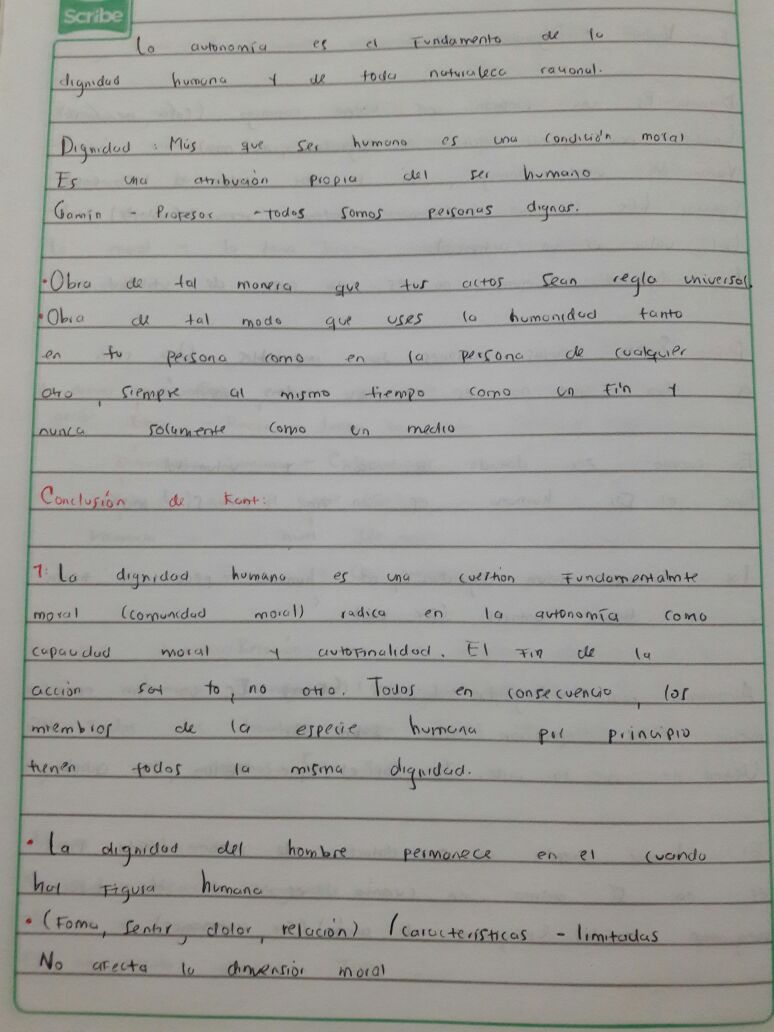 Scribe
La autonomía es el Fundamento de la
dignidad humana y de toda naturaleca racional.
Dignidad : Más que ser humano es una condición moral
Es una atribución propia del ser humano
Gamín - Profesor - todos somos personas dignas.
• Obra de tal manera que tus actos sean regla universal.
• Obra de tal modo que uses la humanidad tanto
en tu persona como en la persona de cualquier
otro, siempre al mismo tiempo como un fin y
nunca solamente como un medio
Conclusión de Kant:
1: La dignidad humana es una cuestion Fundamentalmte
moral (comunidad moral) radica en la autonomía como
capacidad moral y autofinalidad. El Fin de la
acción to, no otro. Todos en consecuencia, los
miembros de la especie humana por principio
tienen todos la misma dignidad.
• La dignidad del hombre permanece en el cuando
hay Figura humana
• (Foma, sentir, dolor, relación) / características - limitadas
No afecta la dimensión moral